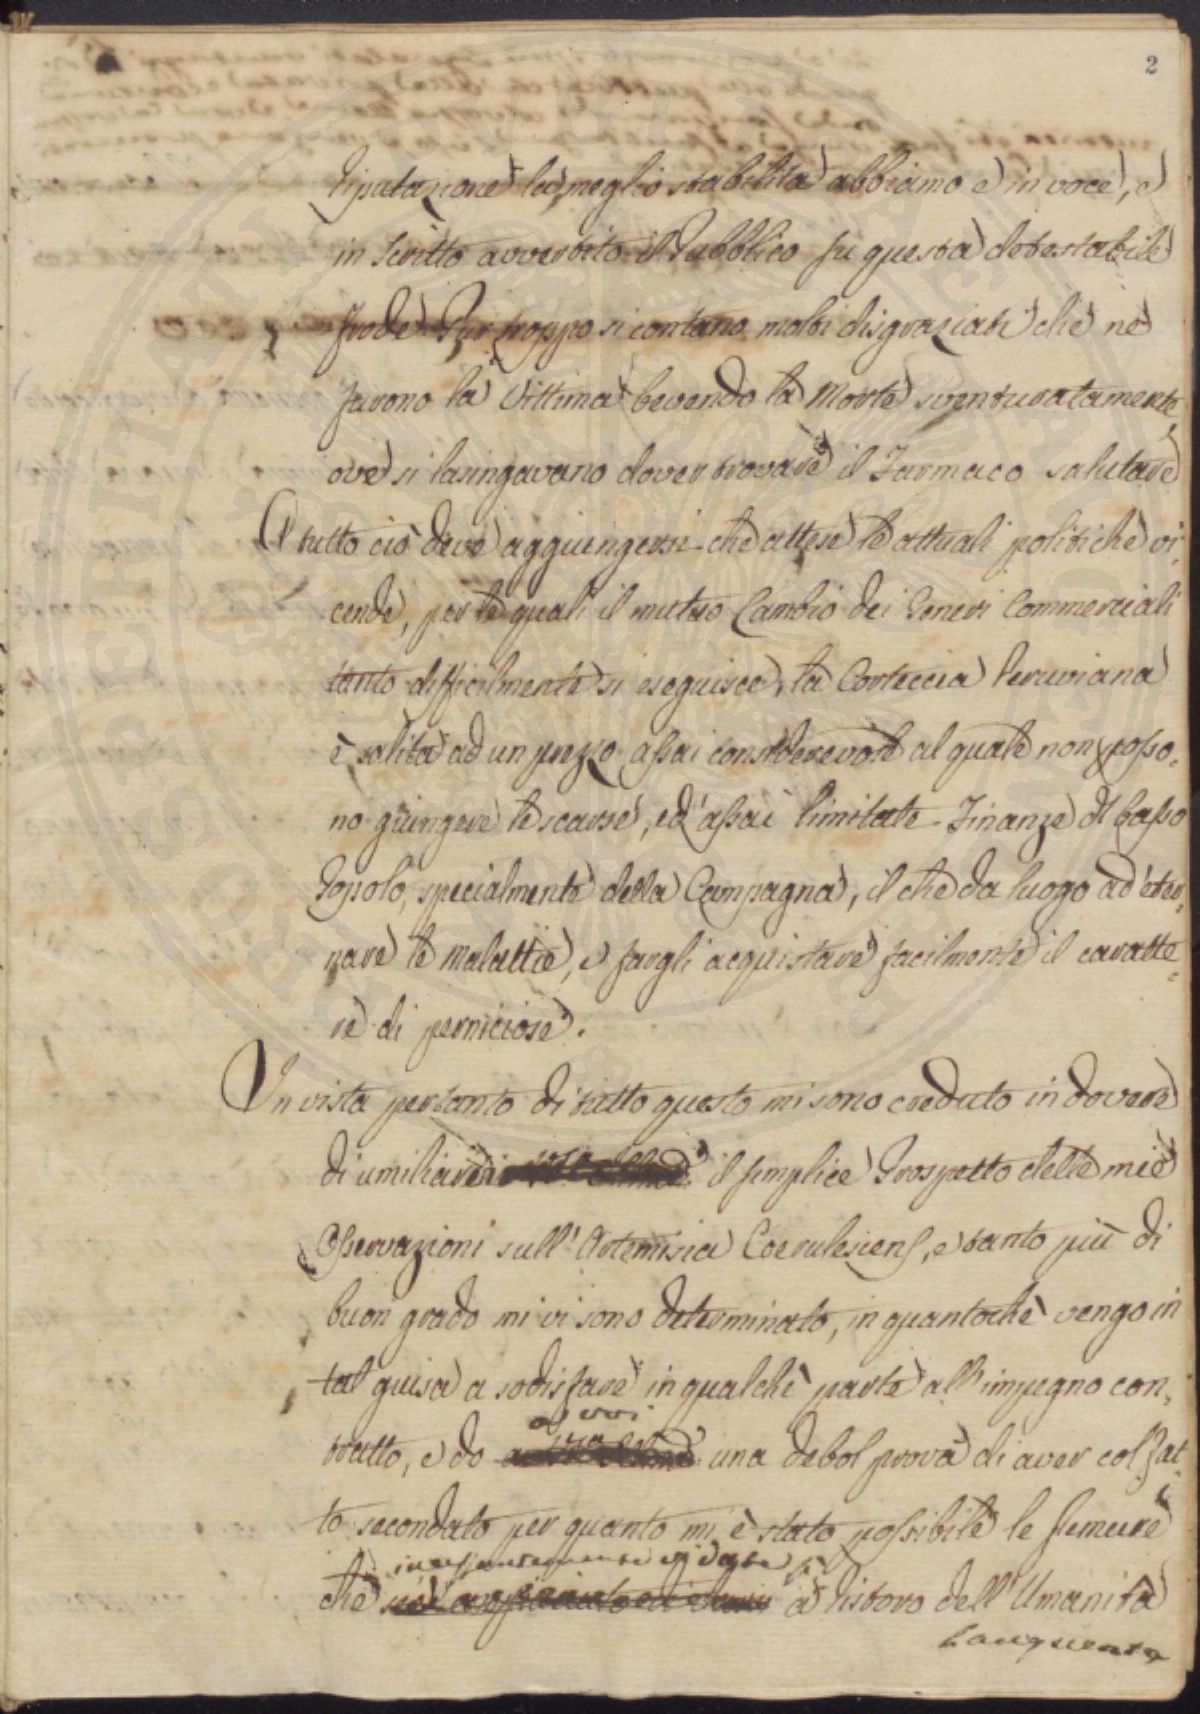 2
riputazione la meglio stabilita abbiamo e in voce, e
in scritto avvertito il Pubblico su questa detestabile
frode. Pur troppo si contano molti disgraziati che ne
furono la Vittima bevendo la Morte sventuratamente,
ove si lusingavano dover trovare il Farmaco salutare
A tutto ciò deve aggiungersi che attese le attuali politiche vi-
cende, per le quali il mutuo Cambio dei Generi Commerciali
tanto difficilmente si eseguisce, la Corteccia Peruviana
è salita ad un prezzo assai considerevole al quale non posso-
no giungere le scarse, ed assai limitate Finanze di basso
Popolo, specialmente della Campagna, il che da luogo ad eter-
nare le Malattie, e fargli acquistare facilmente il caratte-
re di perniciose.
In vista pertanto di tutto questo mi sono creduto in dovere
di umiliare il semplice Prospetto delle mie
Osservazioni sull' Artemisia Coerulesciens, e tanto più di
buon grado mi vi sono determinato, in quantochè vengo in
tal guisa a sodisfare in qualche parte all' impegno con-
a voi
tratto, e do una debol prova di aver col fat-
to secondato per quanto mi è stato possibile le premure
incessantemente vi date
che a ristoro dell' Umanità
Languente